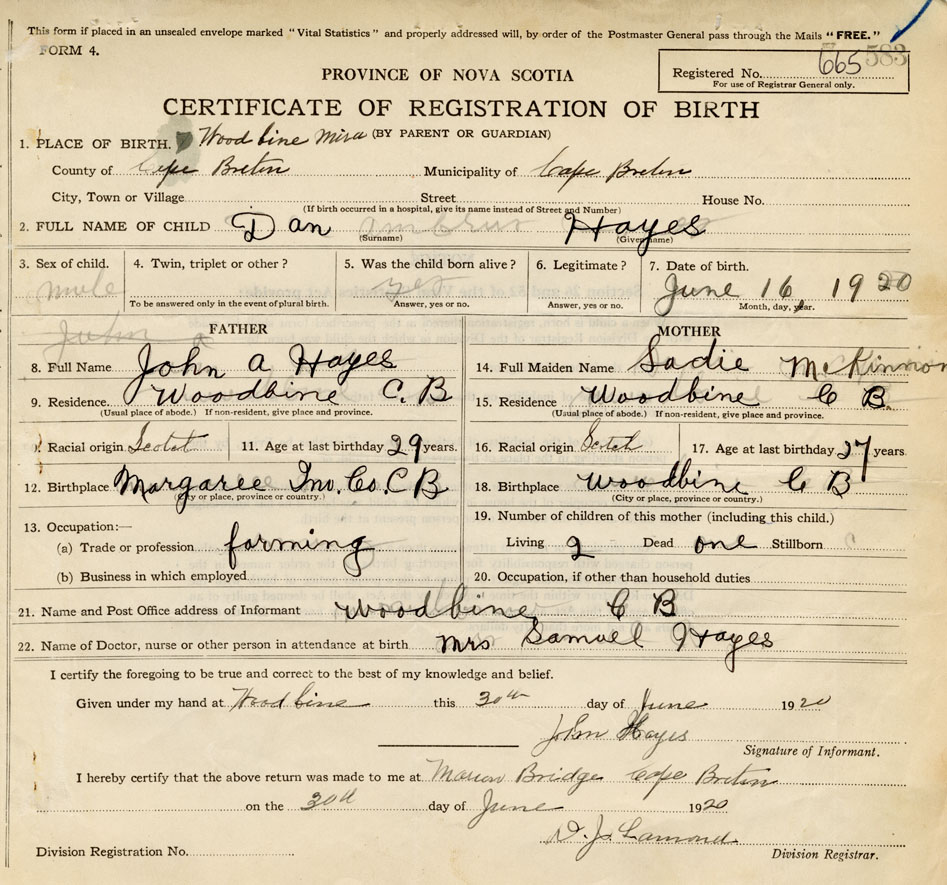 This form if placed in an unsealed envelope marked "Vital Statistics" and properly addressed will, by order of the Postmaster General pass through the Mails "FREE."
FORM 4.
583
Registered No. 665
For use of Registrar General only.
PROVINCE OF NOVA SCOTIA
CERTIFICATE OF REGISTRATION OF BIRTH
(BY PARENT OR GUARDIAN)
1. PLACE OF BIRTH. Woodbine Mira
County of Cape Breton Municipality of Cape Breton
City, Town or Village Street House No.
(If birth occurred in a hospital, give its name instead of Street and Number)
2. FULL NAME OF CHILD Dan Hayes
(Surname) (Given name)
3. Sex of child. 4. Twin, triplet or other? 5. Was the child born alive? 6. Legitimate? 7. Date of birth.
male yes June 16, 1920
To be answered only in the event of plural birth. Answer, yes or no. Answer, yes or no. Month, day, year.
John a
FATHER MOTHER
8. Full Name John a Hayes 14. Full Maiden Name Sadie McKinnon
9. Residence. Woodbine C. B 15. Residence Woodbine C B.
(Usual place of abode.) If non-resident, give place and province. (Usual place of abode.) If non-resident, give place and province.
Racial origin Scotch 11. Age at last birthday 29 years. 16. Racial origin Scotch 17. Age at last birthday 27 years
12. Birthplace Margaree Inv. Co. C B 18. Birthplace Woodbine C B
(City or place, province or country.) (City or place, province or country.)
13. Occupation:— 19. Number of children of this mother (including this child.)
(a) Trade or profession farming Living 2 Dead one Stillborn
(b) Business in which employed 20. Occupation, if other than household duties
21. Name and Post Office address of Informant Woodbine C B
22. Name of Doctor, nurse or other person in attendance at birth Mrs Samuel Hayes
I certify the foregoing to be true and correct to the best of my knowledge and belief.
Given under my hand at Woodbine this 30th day of June 1920
John Hayes
Signature of Informant.
I hereby certify that the above return was made to me at Marion Bridge Cape Breton
on the 30th day of June 1920
D. J. Lamond
Division Registration No. Division Registrar.